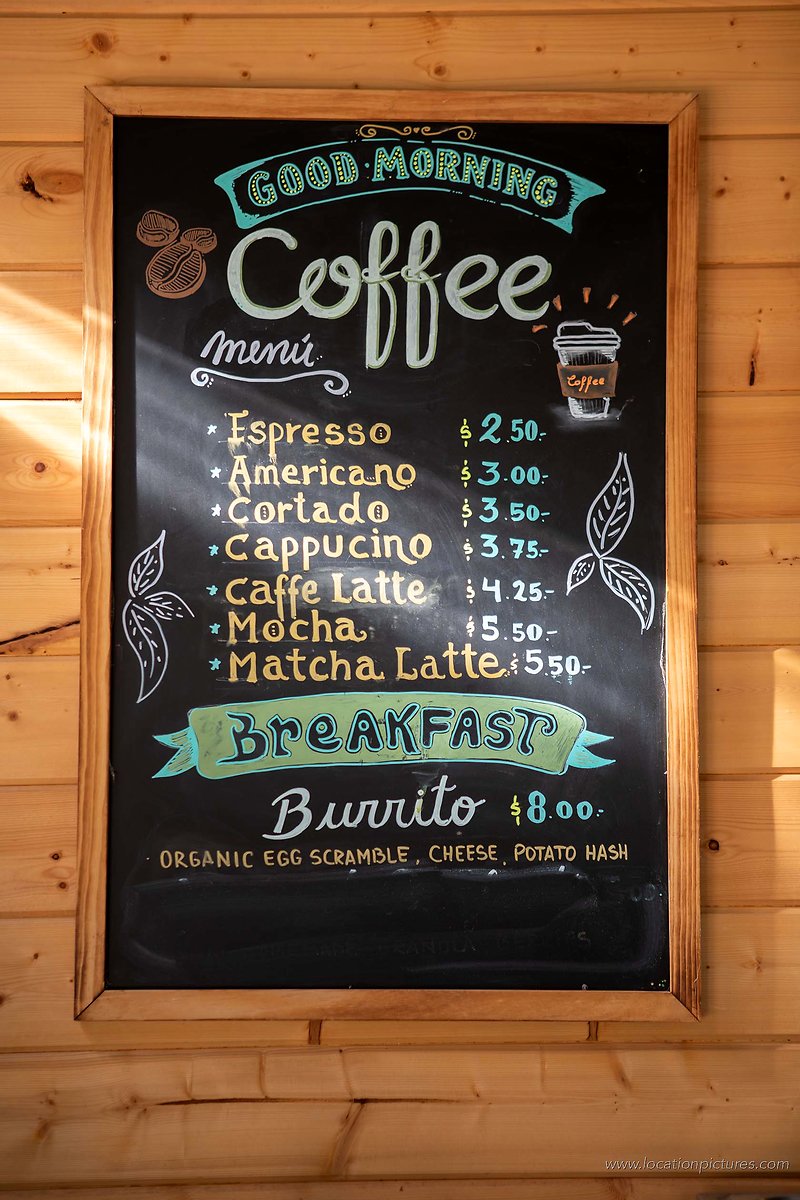 GOOD MORNING
Coffee
menú
Coffee
Espresso $2.50.-
Americano $3.00.-
Cortado $3.50.-
Cappucino $3.75.-
Caffe Latte $4.25-
Mocha $5.50-
Matcha Latte $5.50.-
BreAKFAST
Burrito $8.00.-
ORGANIC EGG SCRAMBLE, CHEESE, POTATO HASH
www.locationpictures.com